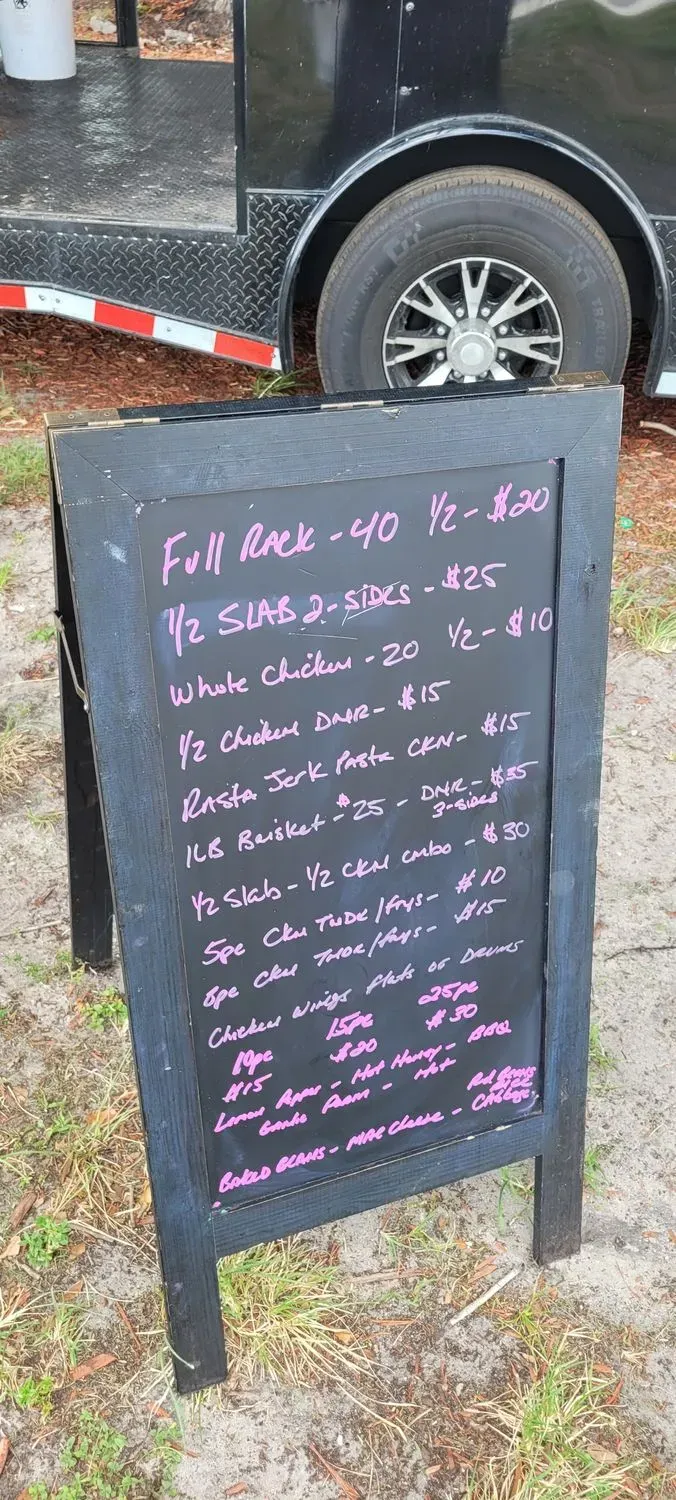 Full Rack - 40 1/2 - $20
1/2 SLAB 2-SIDES - $25
Whole Chicken - 20 1/2 - $10
1/2 Chicken DNR - $15
Rasta Jerk Pasta CKN - $15
1LB Brisket - $25 - DNR - $35
3-sides
1/2 Slab - 1/2 CKN combo - $30
5pc Ckn TNDR/frys - $10
8pc Ckn TNDR/frys - $15
Chicken wings flats or DRUMS
10pc 15pc 25pc
$15 $20 $30
Lemon Pepper - Hot Honey - BBQ
Garlic Parm - Hot
Red Beans
RICE
BAKED BEANS - MAC Cheese - CABbage
TRAILER